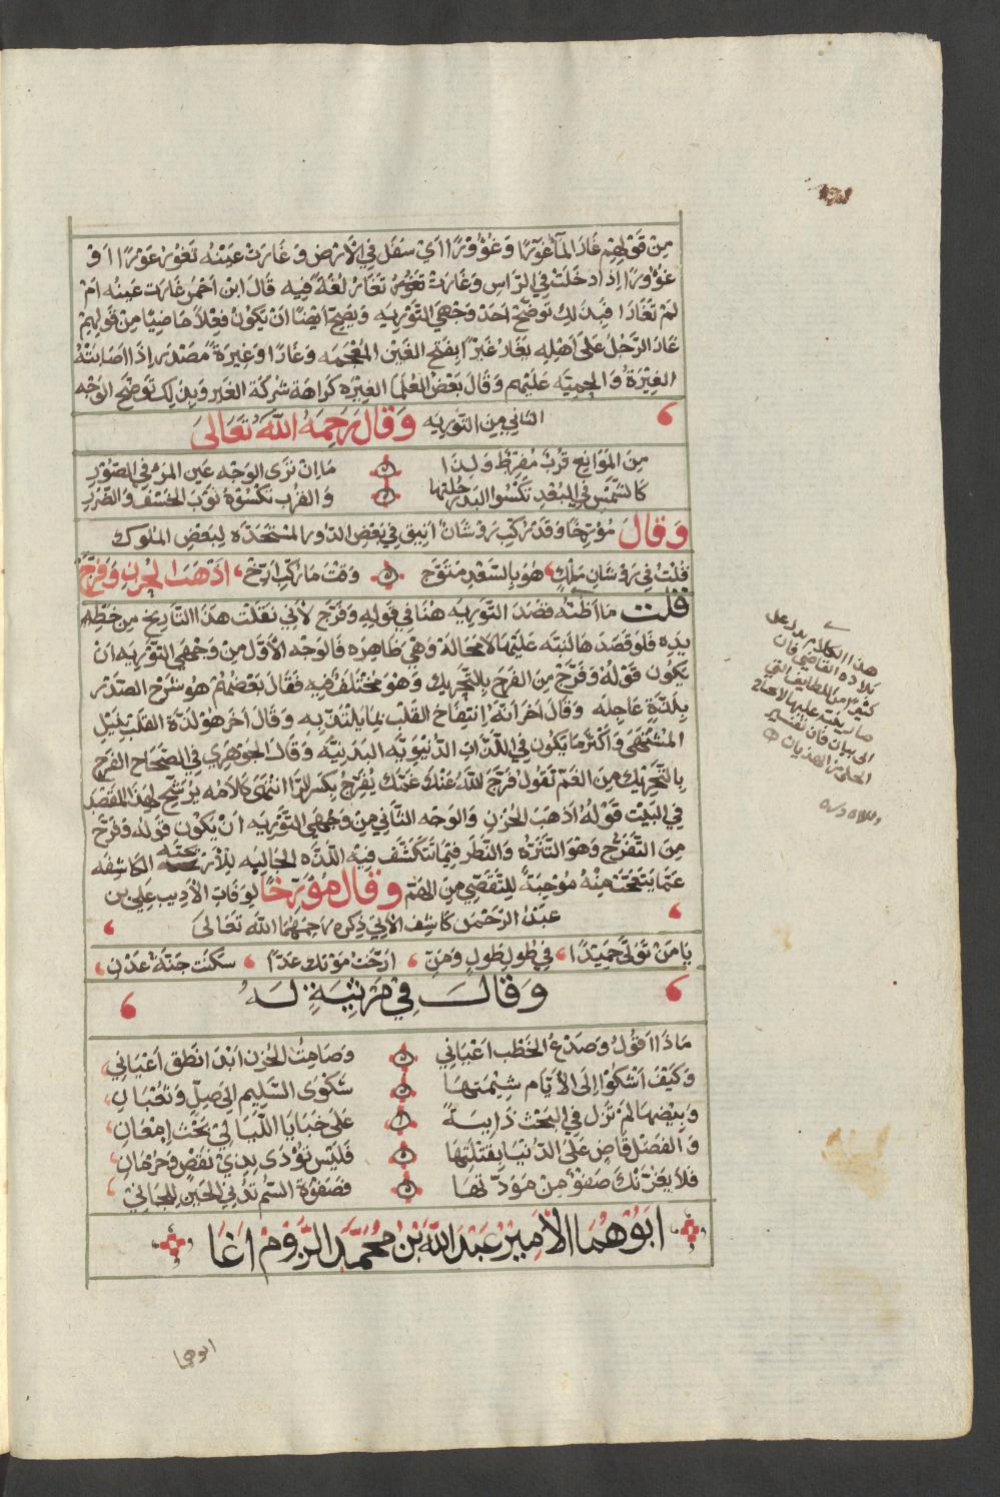 من قولهم غار الماء غورًا وغوورًا اي سفل في الأرض وغارت عينه تغور غورًا او
غوورًا اذا دخلت في الراس وغارت تغور تغار لغة فيه قال ابن احمر غارت عينه ام
لم تغارا فبذلك توضح احد وجهي التوريه ويصح ايضا ان يكون فعلاً ماضيا من قولهم
غار الرجل على اهله يغار غيرًا بفتح الغين المعجمه وغارًا وغيرة مصدر اذا اصابته
الغيرة والحمية عليهم وقال بعض العلما الغيره كراهة شركة الغير وبذلك توضح الوجه
الثاني من التوريه وقال رحمه الله تعالى
من الموانع قرب مفرط ولذا ما ان نرى الوجه عين المرء في الصور
كالشمس في البعد تكسوا البدر حلتها والقرب تكسوه ثوب الخسف والضرر
وقال مؤرخا وقد ركب روشان انيق في بعض الدور المستحدثه لبعض الملوك
قلت في روشان ملك هو بالسعد متوج وقت ما ركب ارخ اذهب الحزن وفرج
قلت ما اظنه قصد التوريه هنا في قوله وفرج لأني نقلت هذا التاريخ من خطه
بيده فلو قصدها لنبه عليها لا محالة وهي ظاهره فالوجه الأول من وجهي التوريه ان
يكون قوله وفرج من الفرج بالتحريك وهو مختلف فيه فقال بعضهم هو شرح الصدر
بلذة عاجله وقال اخر انه إنتفاخ القلب بما يلتذ به وقال اخر هو لذة القلب بنيل
المشتهى واكثر ما يكون في اللذات الدنيويه البدنيه وقال الجوهري في الصحاح الفرج
بالتحريك من الغم تقول فرج الله عنك غمك يفرج بكسر الرا انتهى كلامه يرشح لهذا المقصد
في البيت قوله اذهب الحزن والوجه الثاني من وجهي التوريه ان يكون قوله وفرج
من التفرج وهو التنزه والنظر فيما تتكشف فيه اللذه الجالبه للأريحيه الكاشفه
عما منه موجبة للتفصي من الهم وقال مؤرخا لوفات الأديب علي بن
عبد الرحمن كاشف الآتي ذكره رحمهما الله تعالى
يا من تولى حميدا في طول طول ومن ارخت موتك عدًا سكنت جنة عدن
وقال في مرثية له
ماذا اقول وصدع الخطب اعياني وصامت الحزن ابدا نطق اعياني
وكيف اشكوا إلى الأيام شيمتها شكوى السليم الى صل وثعبان
وبيضها لم تزل في البحث دايبة على خبايا الليالي بحث إمعان
والفضل قاض على الدنيا بقتلتها فليس تؤدى بذي نقص وحرمان
فلا يغرنك صفو من مودتها فصفوة السم تدني الحين للجاني
ابوهما الأمير عبد الله بن محمد الروم اغا
ابوهما
هذا الكلام يدل على
بلادة القاضي فان
كثيرا من اللطايف التي
الى بيان فان تفسير